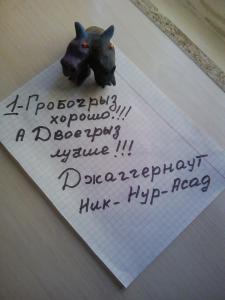 1-Гробогрыз
хорошо!!!
А Двоегрыз
лучше!!!
Джаггернаут
Ник-Нур-Асад